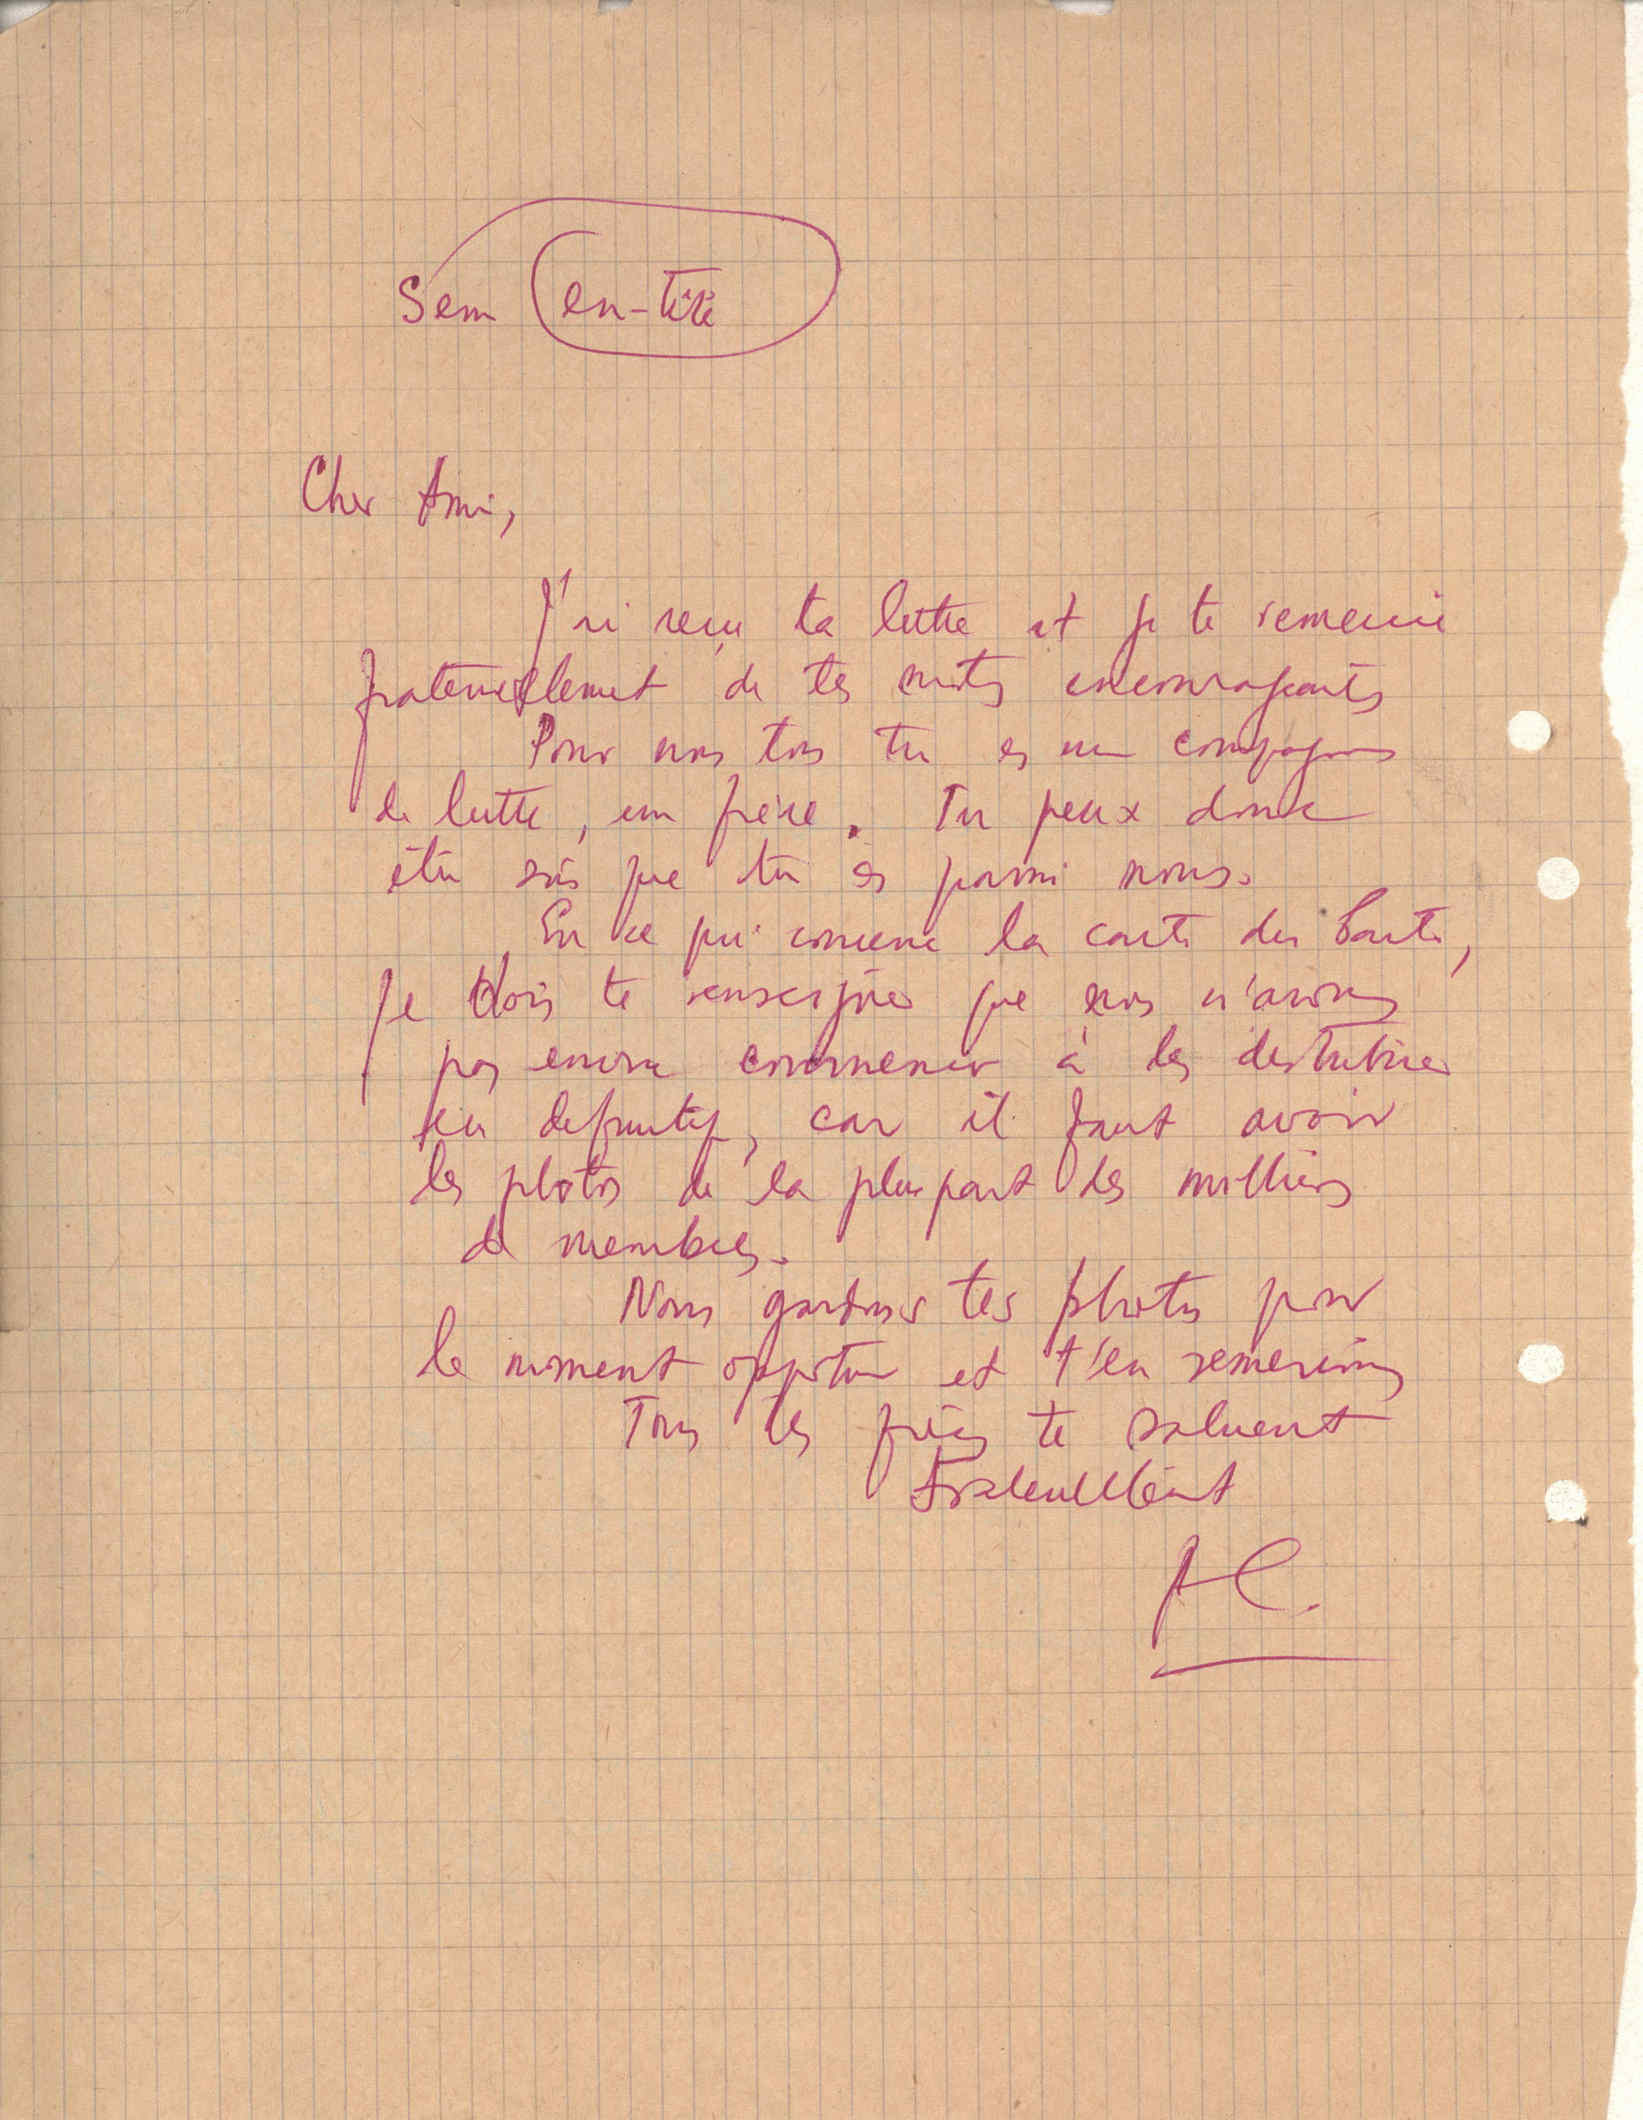 Sem en-tête
Cher Ami,
J'ai reçu ta lettre et je te remercie
fraternellement de tes mots encourageants
Pour nous tous tu es un compagnon
de lutte, un frère. Tu peux donc
être sûr que tu es parmi nous.
En ce qui concerne la carte du Parti,
je dois te renseigner que nous n'avons
pas encore commencer à les distribuer
en definitif, car il faut avoir
les photos de la plus part des milliers
de membres.
Nous gardons tes photos pour
le moment opportun et t'en remercions
Tous les frères te saluent
Fraternellement
AC.